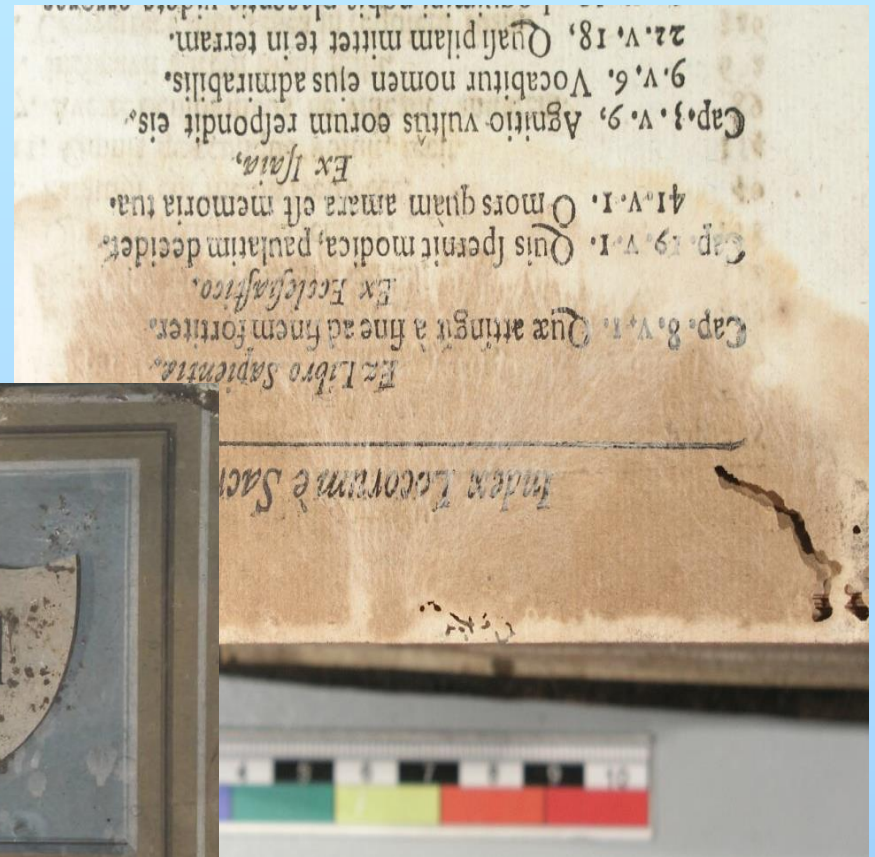 Index Locorum è Sacr
Ex Libro Sapientiæ,
Cap. 8, v. 1. Quæ attingit à fine ad finem fortiter.
Ex Eccleſiaſtico.
Cap. 19. v. 1. Quis ſpernit modica, paulatim decidet.
41. v. 1. O mors quàm amara eſt memoria tua.
Ex Iſaia,
Cap. 3. v. 9, Agnitio vultûs eorum reſpondit eis.
9. v. 6. Vocabitur nomen ejus admirabilis.
22. v. 18, Quaſi pilam mittet te in terram.
4 5 6 7 8 9 10